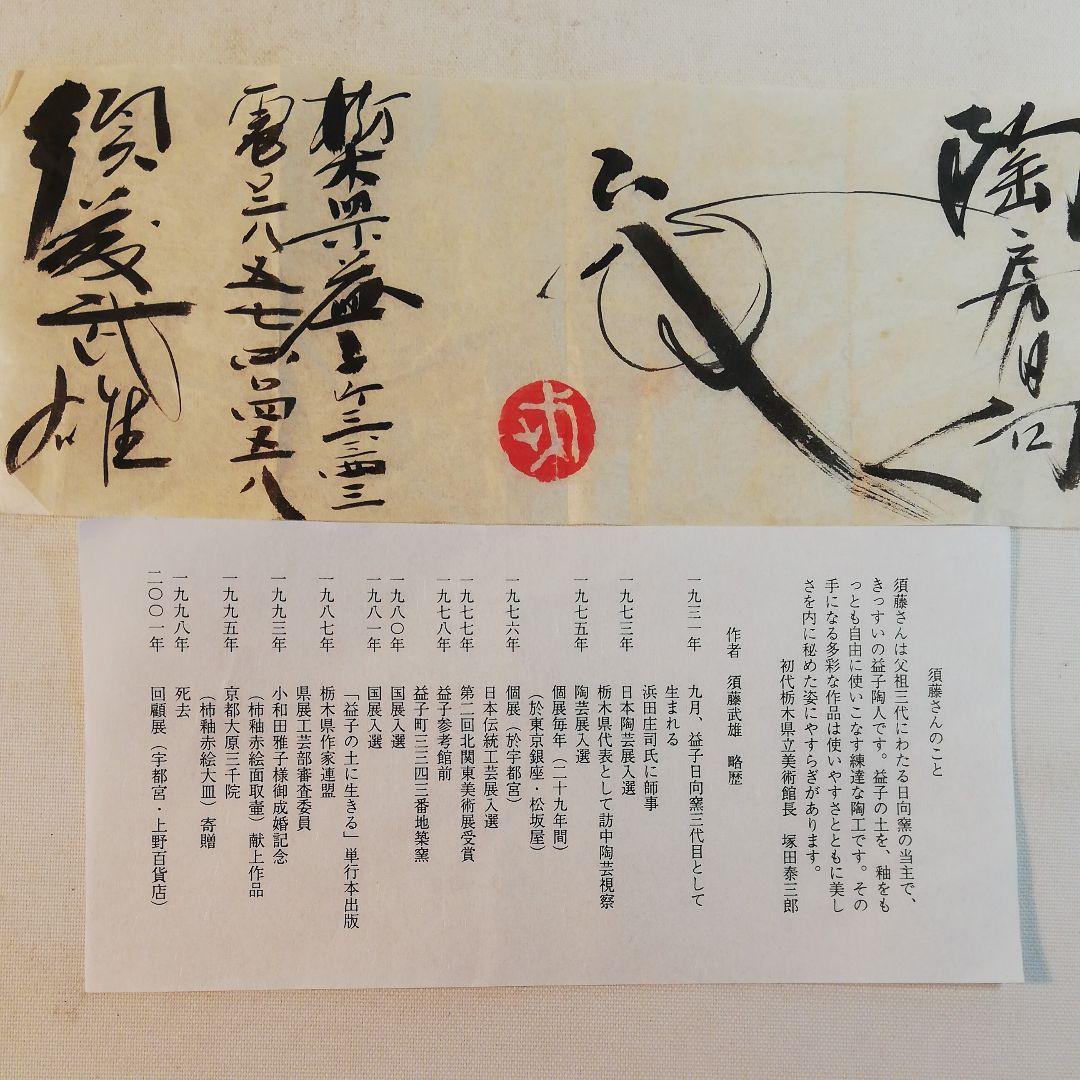 陶房日向
栃木県益子町三三四三
電〇二八五七二四五八
須藤武雄
須藤さんのこと
須藤さんは父祖三代にわたる日向窯の当主で、
きっすいの益子陶人です。益子の土を、釉をも
っとも自由に使いこなす練達な陶工です。その
手になる多彩な作品は使いやすさとともに美し
さを内に秘めた姿にやすらぎがあります。
初代栃木県立美術館長 塚田泰三郎
作者 須藤武雄 略歴
一九三一年 九月、益子日向窯三代目として
生まれる
浜田庄司氏に師事
一九七三年 日本陶芸展入選
栃木県代表として訪中陶芸視察
一九七五年 陶芸展入選
個展毎年（二十九年間）
（於東京銀座・松坂屋）
一九七六年 個展（於宇都宮）
日本伝統工芸展入選
一九七七年 第二回北関東美術展受賞
一九七八年 益子参考館前
益子町三三四三番地築窯
一九八〇年 国展入選
一九八一年 国展入選
「益子の土に生きる」単行本出版
一九八七年 栃木県作家連盟
県展工芸部審査委員
一九九三年 小和田雅子様御成婚記念
（柿釉赤絵面取壷）献上作品
一九九五年 京都大原三千院
（柿釉赤絵大皿）寄贈
一九九八年 死去
二〇〇一年 回顧展（宇都宮・上野百貨店）